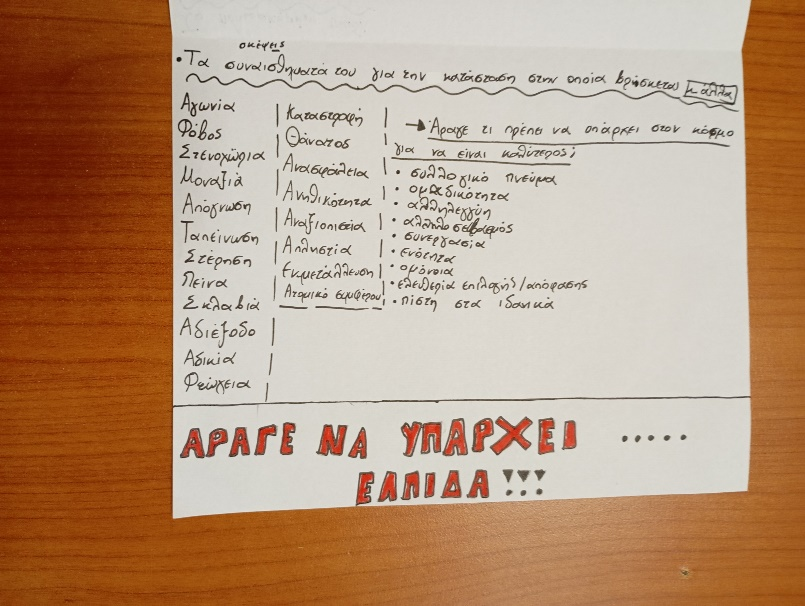 σκέψεις
• Τα συναισθήματά του για την κατάσταση στην οποία βρίσκεται κ άλλα
Αγωνία
Φόβος
Στενοχώρια
Μοναξιά
Απόγνωση
Ταπείνωση
Στέρηση
Πείνα
Σκλαβιά
Αδιέξοδο
Αδικία
Φτώχεια
Καταστροφή
Θάνατος
Ανασφάλεια
Ανηθικότητα
Αναξιοπιστία
Απληστία
Εκμετάλλευση
Ατομικό συμφέρον
→ Άραγε τι πρέπει να υπάρχει στον κόσμο
για να είναι καλύτερος;
• συλλογικό πνεύμα
• ομαδικότητα
• αλληλεγγύη
• αλληλοσεβασμός
• συνεργασία
• ενότητα
• ομόνοια
• ελευθερία επιλογής/απόφασης
• πίστη στα ιδανικά
ΑΡΑΓΕ ΝΑ ΥΠΑΡΧΕΙ .....
ΕΛΠΙΔΑ !!!